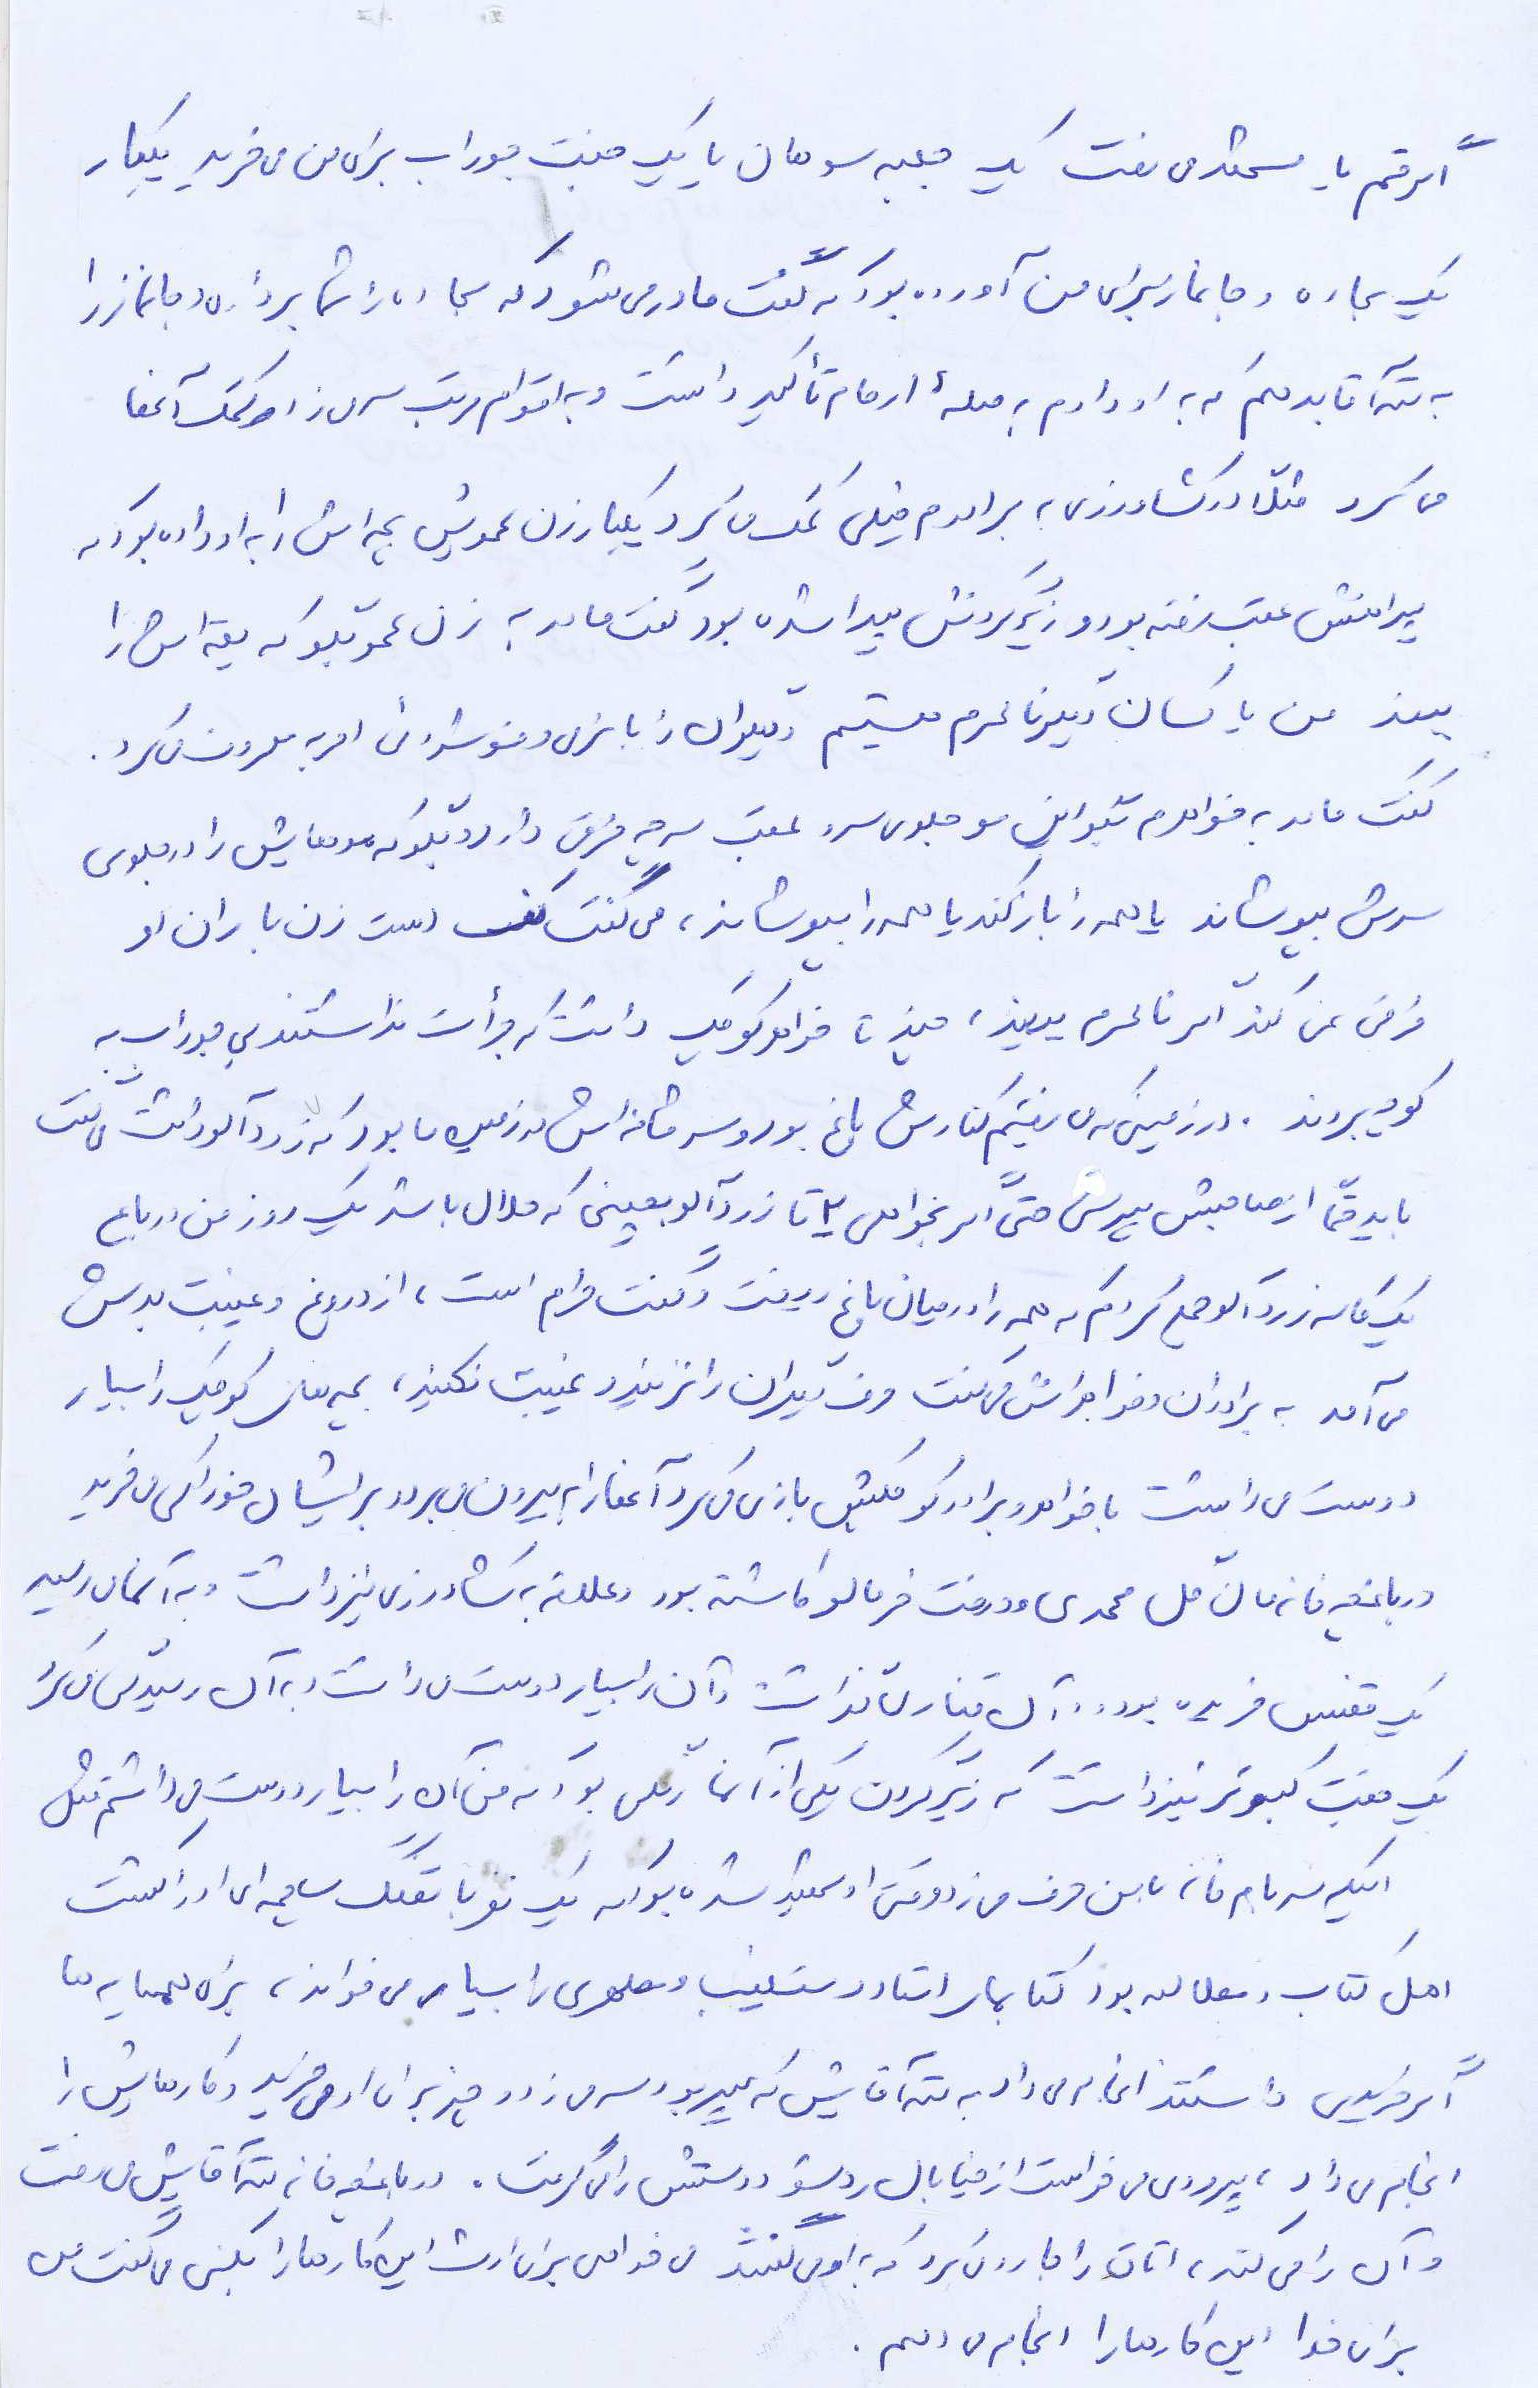 اگر قم یا مشهد می رفت یک جعبه سوهان یا یک جفت جوراب برای من می خرید یکبار
یک سجاده و جانماز برای من آورده بود که گفت مادر می شود که سجاده را شما برداری و جانماز را
به ننه آقا بدهم که به او دادم به صلهٔ ارحام تأکید داشت و به اقوام مرتب سر می زد و کمک آنها
می کرد مثلاً در کشاورزی به برادرم خیلی کمک می کرد یکبار زن عمویش بچه اش را به او داده بود که
پیراهنش عقب رفته بود و زیر گردنش پیدا شده بود گفت مادر به زن عمو بگو که یقه اش را
ببندد من با کسان دیگر نامحرم هستیم دیگران را با نرمی و خوشروئی امر به معروف می کرد.
گفت مادر به خواهرم بگو این مو جلوی سر و عقب سر چه فرقی دارد بگو که موهایش را در جلوی
سرش بپوشاند یا همه را باز کند یا همه را بپوشاند، می گفت کف دست زن با ران او
فرقی نمی کند اگر نامحرم ببیند، چند تا خواهر کوچک داشت که جرأت نداشتند بی جوراب به
کوچه بروند. در زمینی که می رفتیم کنارش باغ بود و سر شاخه اش در زمین ما بود که زردآلو داشت می گفت
باید حتماً از صاحبش بپرسی حتی اگر بخواهی ۲ تا زردآلو بچینی که حلال باشد یک روز من در باغ
یک کاسه زردآلو جمع کردم که همه را در میان باغ ریخت و گفت حرام است، از دروغ و غیبت بدش
می آمد به برادران و خواهرانش می گفت حرف دیگران را نزنید و غیبت نکنید، بچه های کوچک را بسیار
دوست می داشت با خواهر و برادر کوچکش بازی می کرد آنها را به بیرون می برد و برایشان خوراکی می خرید
در باغچه خانه مان گل محمدی و درخت خرمالو کاشته بود و علاقه به کشاورزی نیز داشت و به آنها می رسید
یک قفس خریده بود و در آن قناری گذاشت و آن را بسیار دوست می داشت و به آن رسیدگی می کرد
یک جفت کبوتر نیز داشت که زیر گردن یکی از آنها رنگی بود که من آن را بسیار دوست می داشتم مثل
اینکه سر بام خانه با من حرف می زد وقتی او شهید شده بود که یک نفر با تفنگ ساچمه ای او را کشت
اهل کتاب و مطالعه بود کتابهای استاد دستغیب و مطهری را بسیار می خواند، برای همسایه ها
اگر خریدی داشتند انجام می داد به ننه آقایش که پیر بود سر می زد و چیز برای او می خرید و کارهایش را
انجام می داد، پیرمردی می خواست از خیابان رد شود دستش را می گرفت. در باغچه خانه ننه آقایش می رفت
و آن را می کند، اتاق را جارو می کرد که به او می گفتند می خواهی برای ارث این کارها را بکنی می گفت من
برای خدا این کارها را انجام می دهم.